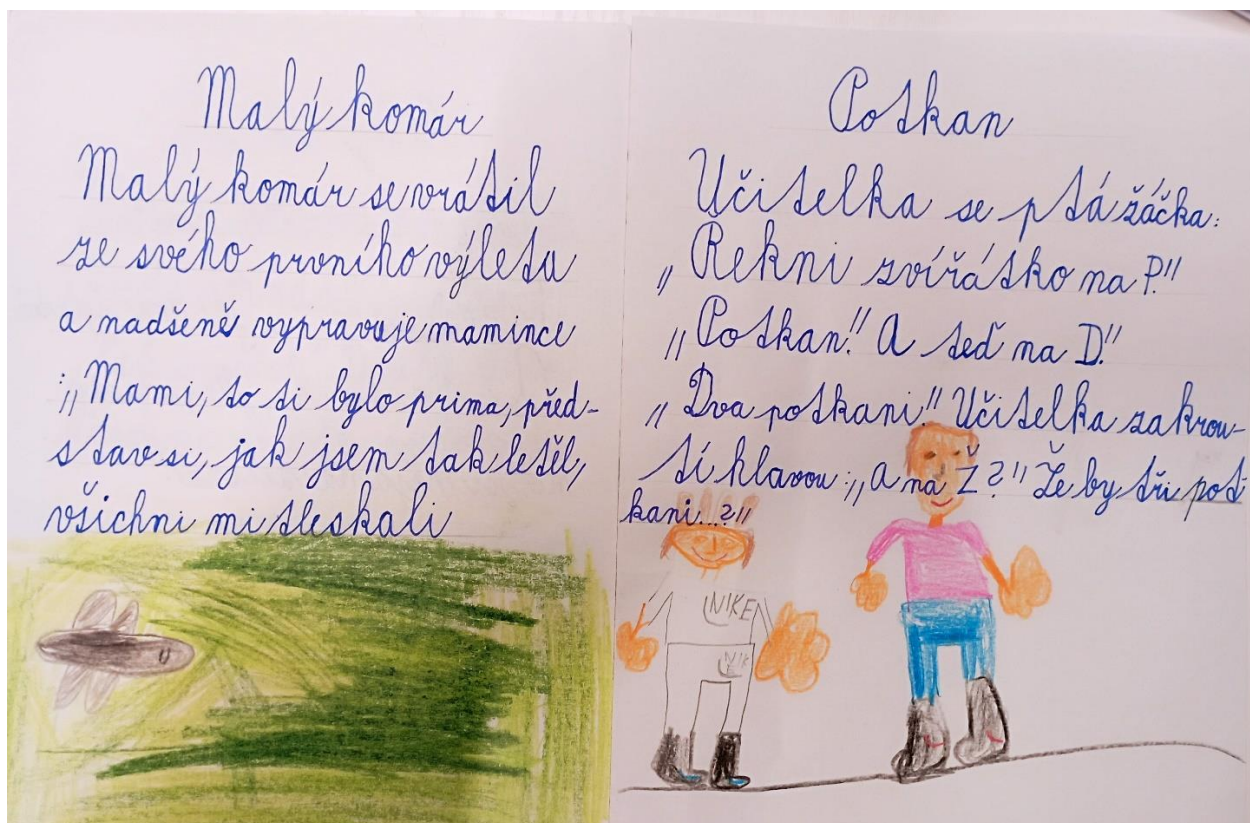 Malý komár
Malý komár se vrátil
ze svého prvního výletu
a nadšeně vypravuje mamince
:„Mami, to ti bylo prima, před-
stav si, jak jsem tak letěl,
všichni mi tleskali
Potkan
Učitelka se ptá žáčka:
„Řekni zvířátko na P."
„Potkan!" A teď na D."
„Dva potkani!" Učitelka zakrou-
tí hlavou:„A na Ž?" Že by tři pot-
kani...?"
NIKE
NIKE